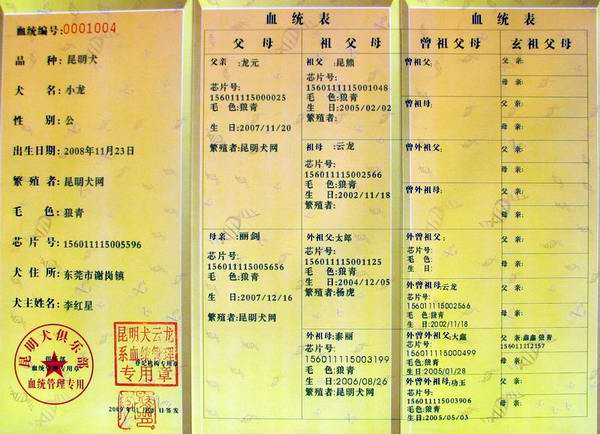 血统编号:0001004
品 种:昆明犬
犬 名:小龙
性 别:公
出生日期:2008年11月23日
繁 殖 者:昆明犬网
毛 色:狼青
芯 片 号:156011115005596
犬 住 所:东莞市谢岗镇
犬主姓名:李红星
昆明犬俱乐部
血统管理专用章
血统管理专用
昆明犬云龙
系血统管理
登记机构专用章
专用章
血 统 表
父 母
祖 父 母
父亲:龙元
芯片号:
156011115000025
毛 色:狼青
生 日:2007/11/20
繁殖者:昆明犬网
祖父:昆熊
芯片号:
156011115001048
毛 色:狼青
生 日:2005/02/02
繁殖者:
祖母:云龙
芯片号:
156011115002566
毛 色:狼青
生 日:2002/11/18
繁殖者:
母亲:丽剑
芯片号:
156011115005656
毛 色:狼青
生 日:2007/12/16
繁殖者:昆明犬网
外祖父:太郎
芯片号:
156011115001125
毛 色:狼青
生 日:2004/12/05
繁殖者:杨虎
外祖母:泰丽
芯片号:
156011115003199
毛 色:狼青
生 日:2006/08/26
繁殖者:昆明犬网
血 统 表
曾祖父母
玄祖父母
曾祖父:
父 亲:
母 亲:
曾祖母:
父 亲:
母 亲:
曾外祖父:
父 亲:
母 亲:
曾外祖母:
父 亲:
母 亲:
外曾祖父:
芯片号:
毛 色:
生 日:
父 亲:
母 亲:
外曾祖母:云龙
芯片号:
156011115002566
毛 色:狼青
生 日:2002/11/18
父 亲:
母 亲:
外曾外祖父:大鑫
芯片号:
156011115000499
毛 色:狼青
生 日:2005/01/28
父 亲:鑫鑫 狼青
156011112157
母 亲:
外曾外祖母:功玉
芯片号:
156011115003906
毛 色:狼青
生 日:2005/05/03
父 亲:
母 亲: